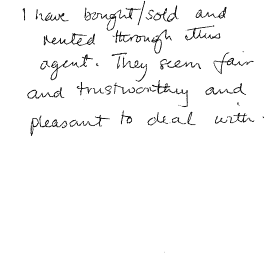 I have bought/sold and
rented through this
agent. They seem fair
and trustworthy and
pleasant to deal with.